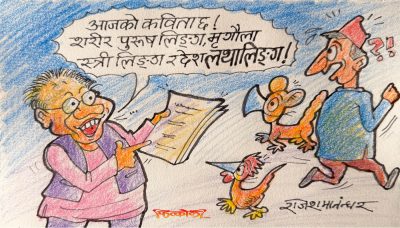 आजको कविता छ !
शरीर पुरूष लिङ्ग, मृगौला
स्त्री लिङ्ग र देश लथालिङ्ग !
?!
राजेश मानन्धर